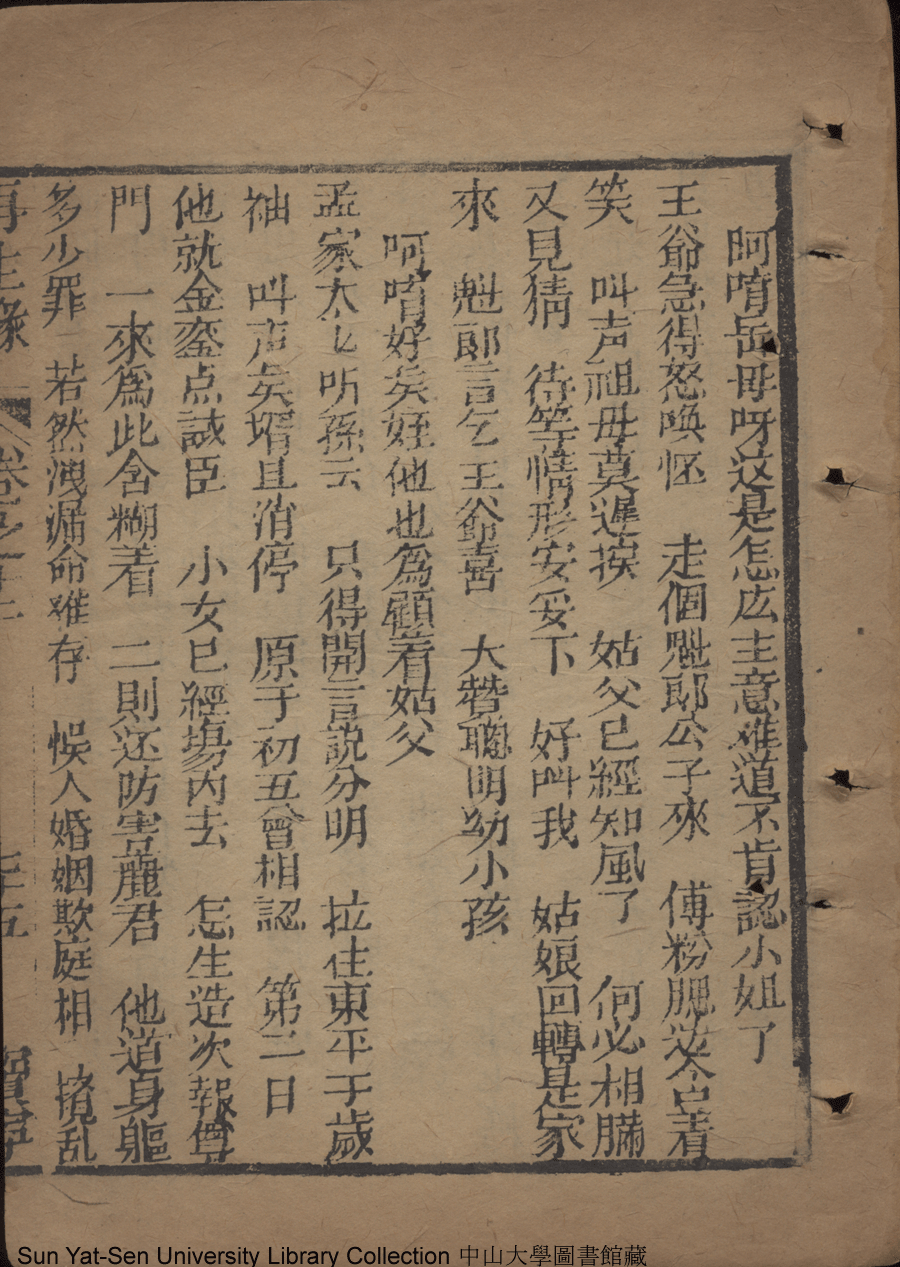 阿唷岳母呀这是怎広主意难道不肯認小姐了
王爺急得怒喚怀　走個魁郎公子來　傅粉腮边含着
笑　叫声祖母莫遲挨　姑父已經知風了　何必相瞞
又見猜　待等情形安妥下　好叫我　姑娘回轉是家
來　魁郎言乞王爺喜　大賛聰明幼小孩
呵唷好矣姪他也為顧着姑父
孟家太匕听孫云　只得開言説分明　拉住東平千歲
袖　叫声矣壻且消停　原于初五曾相認　第二日
他就金銮点試臣　小女已經塲内去　怎生造次報尊
門　一來爲此含糊着　二則还防害麗君　他道身軀
多少罪　若然洩漏命难存　悞人婚姻欺庭相　撓乱
再生緣　卷之十二　三五
Sun Yat-Sen University Library Collection 中山大學圖書館藏